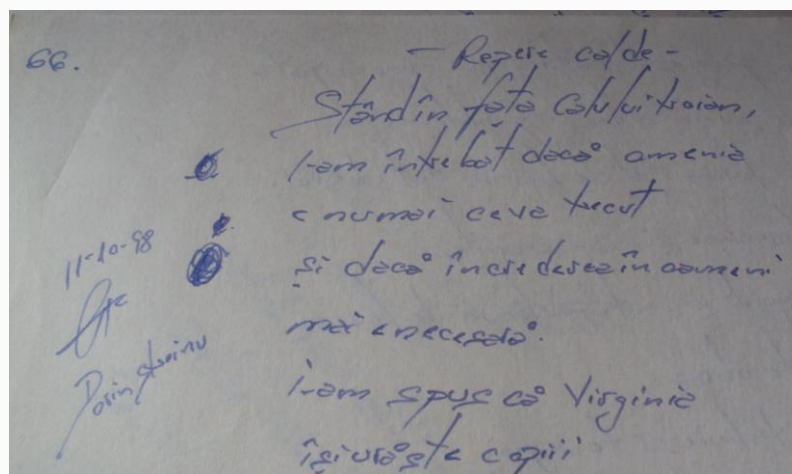 66.
- Repere calde -
Stând în fața calului troian,
l-am întrebat dacă omenia
e numai ceva trecut
și dacă încrederea în oameni
mai e necesară.
I-am spus că Virginia
își urăște copiii
11-10-98
Dorin